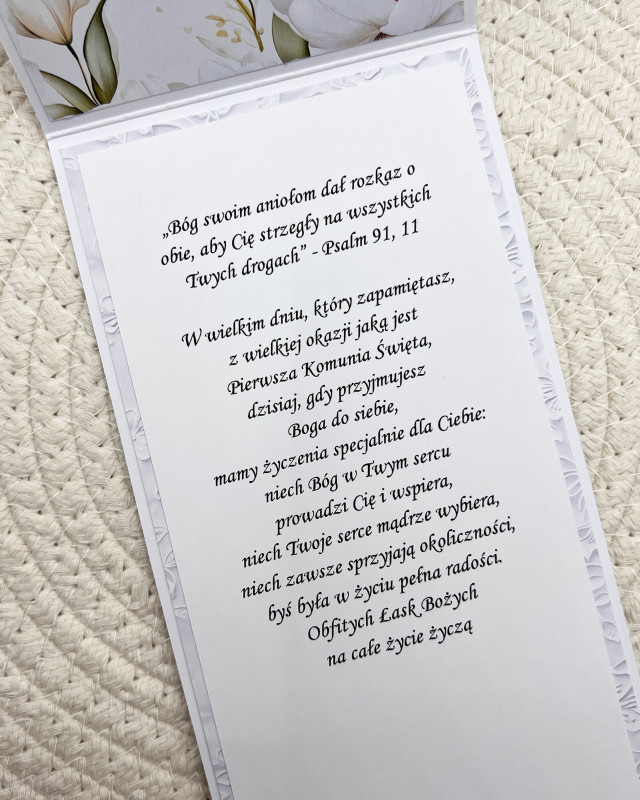 „Bóg swoim aniołom dał rozkaz o
obie, aby Cię strzegły na wszystkich
Twych drogach” - Psalm 91, 11
W wielkim dniu, który zapamiętasz,
z wielkiej okazji jaką jest
Pierwsza Komunia Święta,
dzisiaj, gdy przyjmujesz
Boga do siebie,
mamy życzenia specjalnie dla Ciebie:
niech Bóg w Twym sercu
prowadzi Cię i wspiera,
niech Twoje serce mądrze wybiera,
niech zawsze sprzyjają okoliczności,
byś była w życiu pełna radości.
Obfitych Łask Bożych
na całe życie życzą